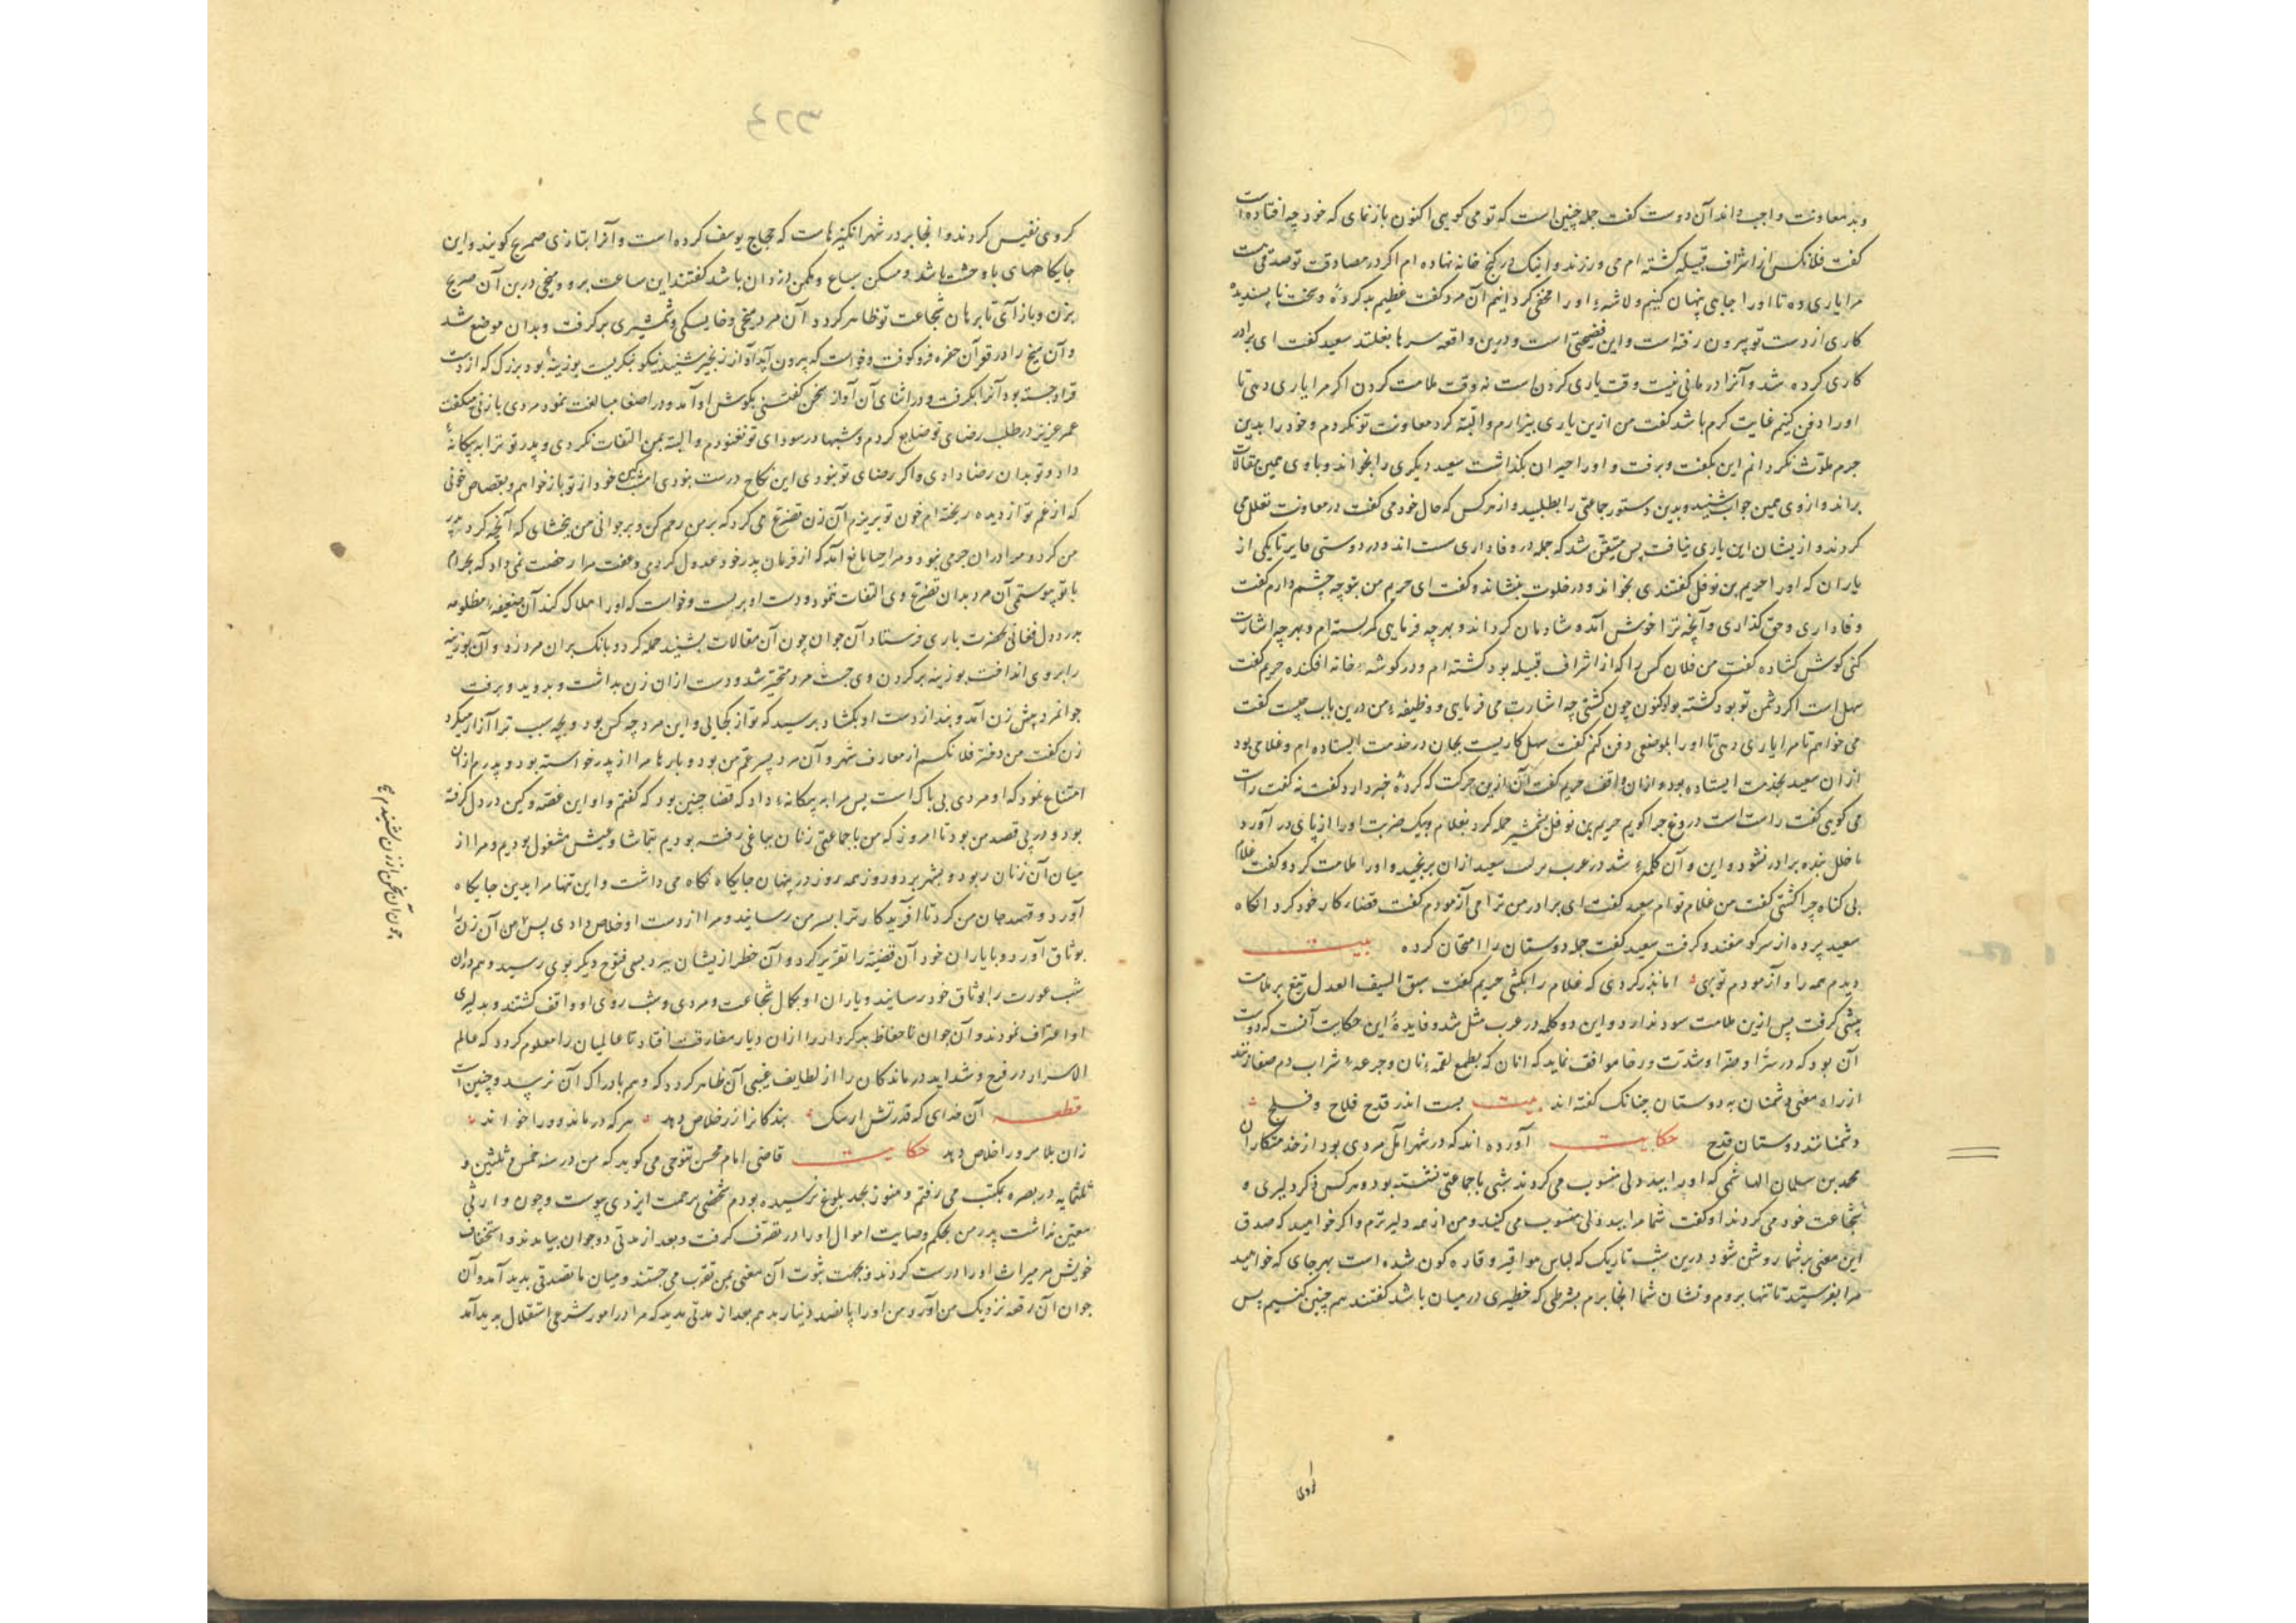 وبد معاونت واجب داند آن دوست گفت جمله چنین است که تو می کویی اکنون باز نمای که خود چه افتاده است
گفت فلانکس از اشراف قبیله کشته ام می ورزند و اینک در کنج خانه نهاده ام اگر در مصادقت تو صدقی هست
مرا یاری ده تا او را جایی پنهان کنیم و لاشهٔ او را مخفی گردانیم آن مرد گفت عظیم بد کردهٔ و سخت ناپسندیده
کاری از دست تو بیرون رفته است و این فضیحتی است و درین واقعه سرها بغلتد سعید گفت ای برادر
کاری کرده شد و آنرا درمانی نیست وقت یاری کردن است نه وقت ملامت کردن اگر مرا یاری دهی تا
او را دفن کنیم غایت کرم باشد گفت من ازین یاری بیزارم و البته کرد معاونت تو نکردم و خود را بدین
جرم ملوث نگردانم این بگفت و برفت و او را حیران بگذاشت سعید دیگری را بخواند و با وی همین مقالات
براند و از وی همین جواب شنید و بدین دستور جماعتی را بطلبید و از هر کس که حال خود می گفت در معاونت تعلل می
کردند و ازیشان این یاری نیافت پس متیقن شد که جمله در وفاداری سست اند و در دوستی مایر تا یکی از
یاران که او را حریم بن نوفل گفتندی بخواند و در خلوت بنشاند و گفت ای حریم من بتو چه چشم دارم گفت
وفاداری و حق گذاری و آنچه ترا خوش آید و شادمان گرداند و بهر چه فرمایی کمر بسته ام و بهر چه اشارت
کنی گوش گشاده گفت من فلان کس را که از اشراف قبیله بود کشته ام و در گوشهٔ خانه افکنده حریم گفت
سهل است اگر دشمن تو بود کشته به اکنون چون کشتی چه اشارت می فرمایی و وظیفهٔ من درین باب چیست گفت
می خواهم تا مرا یاری دهی تا او را بموضعی دفن کنم گفت سهل کاریست بجان در خدمت ایستاده ام و غلامی بود
از آن سعید بخدمت ایستاده بود و از آن واقف حریم گفت آن ازین حرکت که کردهٔ خبر دارد گفت نه گفت راست
می گویی گفت راست است دروغ چرا گویم حریم بن نوفل بشمشیر حمله کرد بغلام و بیک ضربت او را از پای در آورد
تا خلل بنده برادر نشود و این و آن کلمهٔ شد در عرب مرلت سعید ازان برنجید و او را ملامت کرد و گفت غلام
بی گناه چرا کشتی گفت من غلام توام سعید گفت ای برادر من ترا می آزمودم گفت قضا کار خود کرد آنگاه
سعید پرده از سر گوسفند و گرفت سعید گفت جمله دوستان را امتحان کرده بیت
دیدم همه را و آزمودم تو بهی اما نذر کردی که غلام را بکشی حریم گفت سبق السیف العدل تیغ بر ملامت
پیشی گرفت پس ازین ملامت سود ندارد و این دو کلمه در عرب مثل شد و فایدهٔ این حکایت آنست که دوست
آن بود که در سرا و ضرا و شدت و رخا موافق نماید که آنان که بطمع لقمهٔ نان و جرعهٔ شراب دم صفا زنند
از راه معنی دشمنان به دوستان چنانک گفته اند بیت بست اندر قدح فلاح و فلج
دشمنانند دوستان قدح حکایت آورده اند که در شهر آمل مردی بود از خدمتکاران
محمد بن سلمان الهاشمی که او را ببد دلی منسوب می کردند شبی با جماعتی نشسته بود و هر کس ذکر دلیری و
شجاعت خود می کردند او گفت شما مرا ببد دلی منسوب می کنید و من از همه دلیرترم و اگر خواهید که صدق
این معنی بر شما روشن شود درین شب تاریک که لباس هوا قیر و قاره گون شده است بهر جای که خواهید
مرا بفرستید تا تنها بروم و نشان شما آنجا برم بشرطی که خطیری در میان باشد گفتند هم چنین کنیم پس
کروی نفیس کردند و آنجا بر در شهر انگیزهاست که حجاج یوسف کرده است و آنرا بتازی صهریج گویند و این
جایگاههای با وحشت باشد و مسکن سباع و مکمن دزدان باشد گفتند این ساعت برو و میخی درین آن صهریج
بزن و باز آی تا برهان شجاعت تو ظاهر گردد آن مرد میخی و خایسکی و شمشیری بر گرفت و بدان موضع شد
و آن میخ را در قعر آن حفره فرو کوفت و خواست که بیرون آید آواز زنجیر شنید نیکو بنگریست بوزینهٔ بود بزرگ که از دست
قراد جسته بود آنرا بگرفت و در اثنای آن آواز سخن گفتنی بگوش او آمد و در اصغا مبالغت نمود مردی با زنی میگفت
عمر عزیز در طلب رضای تو ضایع کردم و شبها در سودای تو نغنودم و البته بمن التفات نکردی و پدر تو ترا به بیگانهٔ
داد و تو بدان رضا دادی و اگر رضای تو نبودی این نکاح درست نبودی امشب کین خود از تو باز خواهم و بقصاص خونی
که از غم تو از دیده ریخته ام خون تو بریزم آن زن تضرع می کرد که بر من رحم کن و بر جوانی من ببخشای که آنچه کرد پدر
من کرد و مرا در آن جرمی نبود و مرا حیا مانع آمد که از فرمان پدر خود عدول کردمی و عفت مرا رخصت نمی داد که بحرام
با تو پیوستمی آن مرد بدان تضرع وی التفات ننمود و دست او بربست و خواست که او را هلاک کند آن ضعیفهٔ مظلومه
بدرد دل فغانی بحضرت باری فرستاد آن جوان چون آن مقالات بشنید حمله کرد و بانگ بر آن مرد زد و آن بوزینه
را بر وی انداخت بوزینه بر گردن وی جست مرد متحیر شد و دست از آن زن بداشت و بدوید و برفت
جوانمرد پیش زن آمد و بند از دست او بگشاد پرسید که تو از کجایی و این مرد چه کس بود و بچه سبب ترا آزار میکرد
زن گفت من دختر فلانکسم از معارف شهر و آن مرد پسر عم من بود و بارها مرا از پدر خواسته بود و پدرم از آن
امتناع نمود که او مردی بی باک است پس مرا به بیگانهٔ داد که قضا چنین بود که گفتم و او این غصه و کین در دل گرفته
بود و در پی قصد من بود تا امروز که من با جماعتی زنان بباغی رفته بودیم بتماشا و عیش مشغول بودیم و مرا از
میان آن زنان ربود و بشهر برد و روز همه روز در پنهان جایگاه نگاه می داشت و این تنها مرا بدین جایگاه
آورد و قصد جان من کرد تا آفریدگار ترا بسر من رسانید و مرا از دست او خلاص دادی پس من آن زن را
بوثاق آورد و با یاران خود آن قضیه را تقریر کرد و آن خطر ازیشان ببرد بسی فتوح دیگر بوی رسید و هم در آن
شب عورت را بوثاق خود رسانید و یاران او بکمال شجاعت و مردی و شب روی او واقف گشتند و بدلیری
او اعتراف نمودند و آن جوان نا حفاظ بدکردار را از آن دیار مفارقت افتاد تا عالمیان را معلوم گردد که عالم
الاسرار در فرج و شداید درماندگان را از لطایف غیبی آن ظاهر گرداند که وهم بادراک آن نرسد و چنین است
قطعه آن خدای که قدرتش از سنگ بندگانرا از خلاص دهد هر که درماند و ورا خواند
زان بلا مرورا خلاص دهد حکایت قاضی امام محسن تنوخی می گوید که من در سنه خمس و ثلثین و
ثلثمایه در بصره بمکتب می رفتم و هنوز بحد بلوغ نرسیده بودم شخصی برحمت ایزدی پیوست و چون وارثی
معین نداشت پدر من بحکم وصایت اموال او را در تصرف گرفت و بعد از مدتی دو جوان بیامدند و استخفاف
خویش مر میراث او را درست کردند و بجهت ثبوت آن معنی بمن تقرب می جستند و میان ما تصدقی بدید آمد و آن
جوان آن رقعه نزدیک من آورد و من او را پانصد دینار بدهم بعد از مدتی مدید که مرا در امور شرعی استقلال بدید آمد
چون آن سخن از زن شنیدم